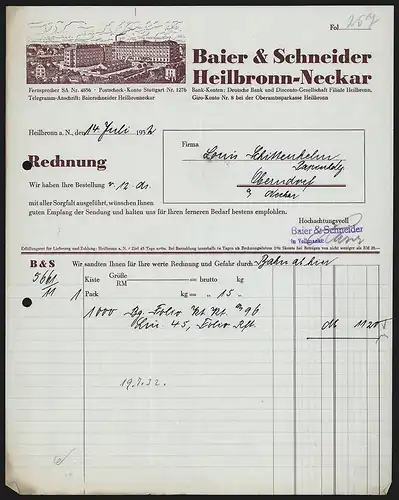 Fol. 257
Baier & Schneider
Heilbronn-Neckar
Fernsprecher SA Nr. 4856 · Postscheck-Konto Stuttgart Nr. 1276
Telegramm-Anschrift: Baierschneider Heilbronneckar
Bank-Konten: Deutsche Bank und Disconto-Gesellschaft Filiale Heilbronn,
Giro-Konto Nr. 8 bei der Oberamtssparkasse Heilbronn
Heilbronn a. N., den 14. Juli 1932
Firma
Louis Schittenhelm
Oberndorf
a/ Neckar
Rechnung
Wir haben Ihre Bestellung v. 12. ds.
mit aller Sorgfalt ausgeführt, wünschen Ihnen
guten Empfang der Sendung und halten uns für Ihren ferneren Bedarf bestens empfohlen.
Hochachtungsvoll
Baier & Schneider
in Vollmacht:
Erfüllungsort für Lieferung und Zahlung: Heilbronn a. N.
B & S Wir sandten Ihnen für Ihre werte Rechnung und Gefahr durch Bahn ab hier
5661 Kiste Größe RM = brutto kg
11 1 Pack kg = " 15 "
1000 Bg. Folio 96
45, Folio M 1120
19.7.32.